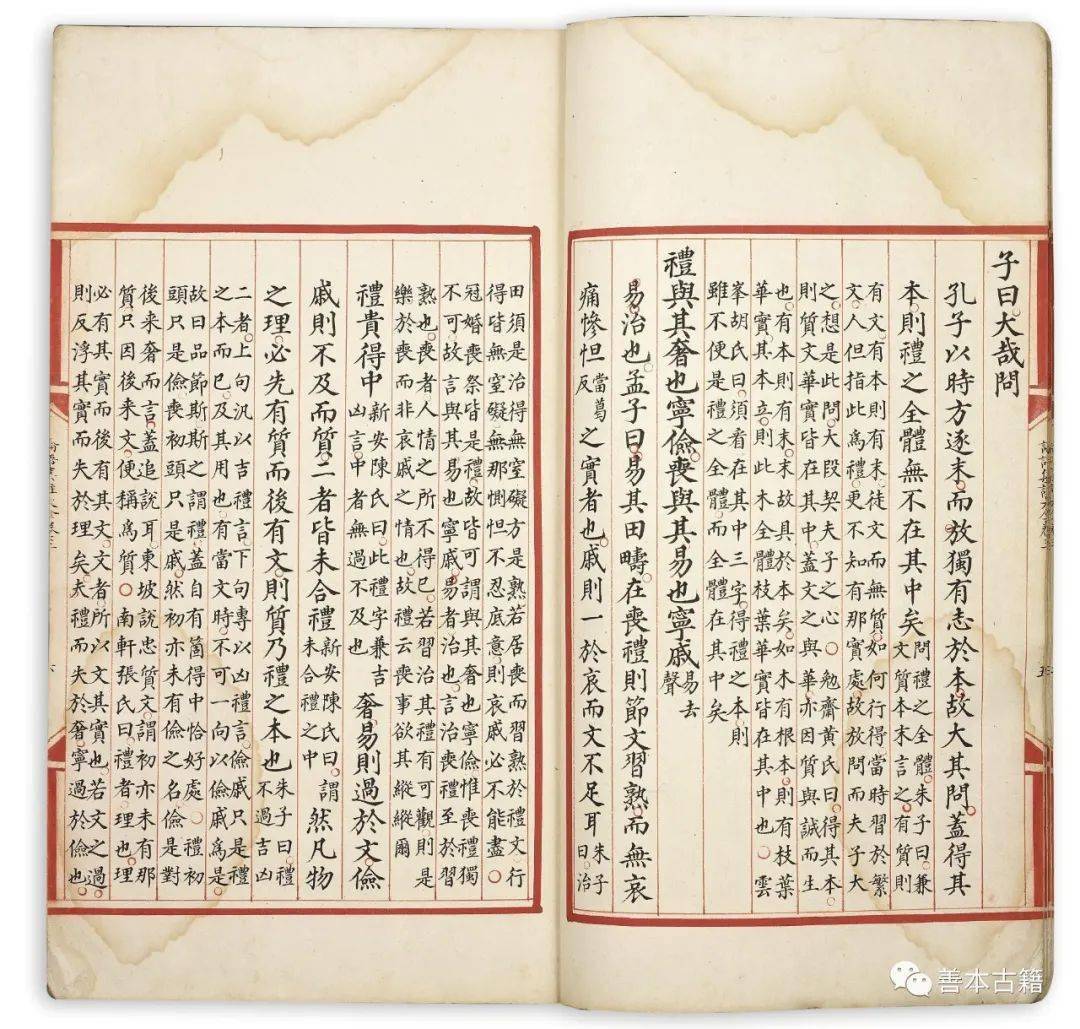 子曰大哉問
孔子以時方逐末而放獨有志於本故大其問蓋得其
本則禮之全體無不在其中矣問禮之全體朱子曰兼
文質本末言之有質則
有文有本則有末徒文而無質如何行得當時習於繁
文人但指此為禮更不知有那實處故放問而夫子大
之想是此問大段契夫子之心○勉齋黃氏曰得其本
則質文華實皆在其中蓋文之與華亦因質與誠而生
也有本則有末末故具於本矣如木有根本則有枝葉
華實其本立則此木全體枝葉華實皆在其中也○雲
峯胡氏曰須看在其中三字得禮之本則
雖不便是禮之全體而全體在其中矣
禮與其奢也寧儉喪與其易也寧戚易去
聲
易治也孟子曰易其田疇在喪禮則節文習熟而無哀
痛慘怛當葛反之實者也戚則一於哀而文不足耳朱子
曰治
田須是治得無窒礙方是熟若居喪而習熟於禮文行
得皆無窒礙無那惻怛不忍底意則哀戚必不能盡○
冠婚喪祭皆是禮故皆可謂與其奢也寧儉惟喪禮獨
不可故言與其易也寧戚易者治也言治喪禮至於習
熟也喪者人情之所不得已若習治其禮有可觀則是
樂於喪而非哀戚之情也故禮云喪事欲其縱縱爾
禮貴得中新安陳氏曰此禮字兼吉凶言中者無過不及也奢易則過於文儉
戚則不及而質二者皆未合禮新安陳氏曰謂未合禮之中然凡物
之理必先有質而後有文則質乃禮之本也朱子曰禮
不過吉凶
二者上句汎以吉禮言下句專以凶禮言儉戚只是禮
之本而已及其用也有當文時不可一向以儉戚為是
故曰品節斯斯之謂禮蓋自有箇得中恰好處○禮初
頭只是儉喪初頭只是戚然初亦未有儉之名儉是對
後来奢而言蓋追說耳東坡說忠質文謂初亦未有那
質只因後来文便稱為質○南軒張氏曰禮者理也理
必有其實而後有其文文者所以文其實也若文之過
則反浮其實而失於理矣夫禮而失於奢寧過於儉也
善本古籍